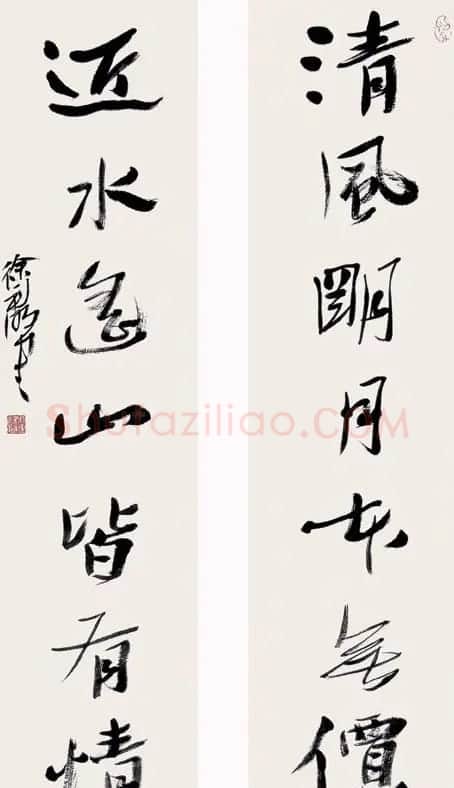 清風朙月本無價
近水遠山皆有情
Shufaziliao.COM